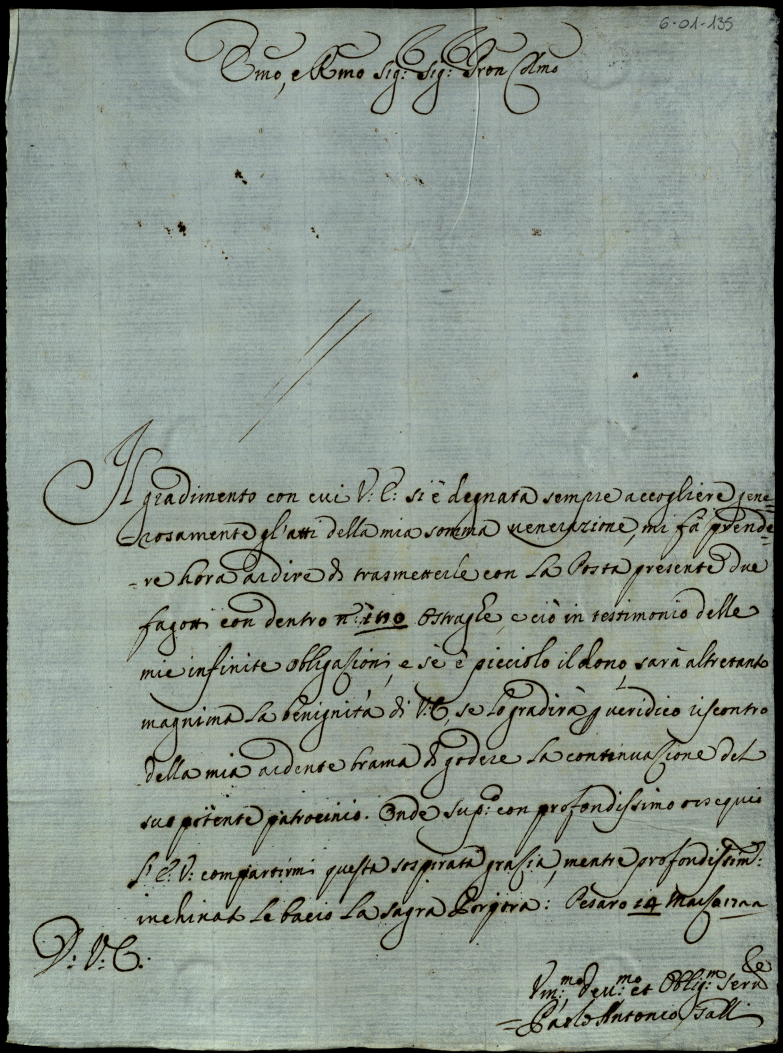 6-01-135
Emo, e Rmo Sig: Sig: Pron Colmo
Il gradimento con cui V: E: si è degnata sempre accogliere gene=
=rosamente gl'atti della mia somma venerazione, mi fà prende=
=re hora ardire di trasmetterle con la Posta presente due
fagotti con dentro n.º Ostraghe, e ciò in testimonio delle
mie infinite obligazioni, e se è picciolo il dono, sarà altretanto
magnima la benignità di V: E, se lo gradirà p veridico riscontro
della mia ardente brama di godere la continuazione del
suo potente patrocinio. Onde sup:co con profondissimo ossequio
l'E: V: compartirmi questa sospirata grazia, mentre profondissim:
inchinat le bacio la sagra Porpora: Pesaro 14 Marso
D: V: E:
Vm:mo Deu:mo et Oblig:mo Serre
=Paolo Antonio Galli